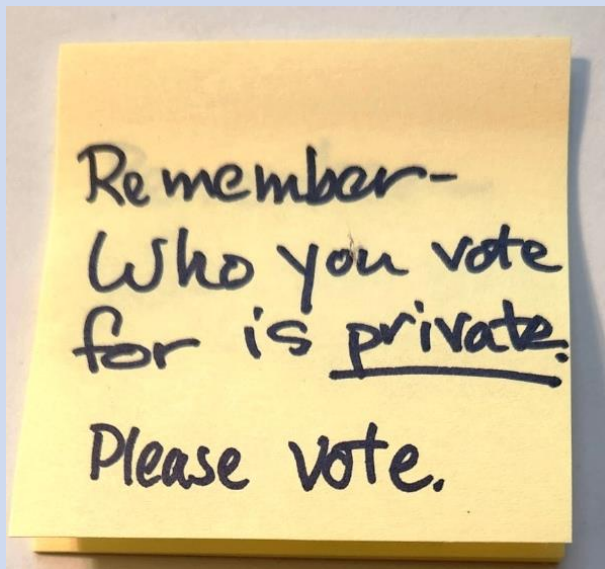 Remember-
Who you vote
for is private.
Please vote.